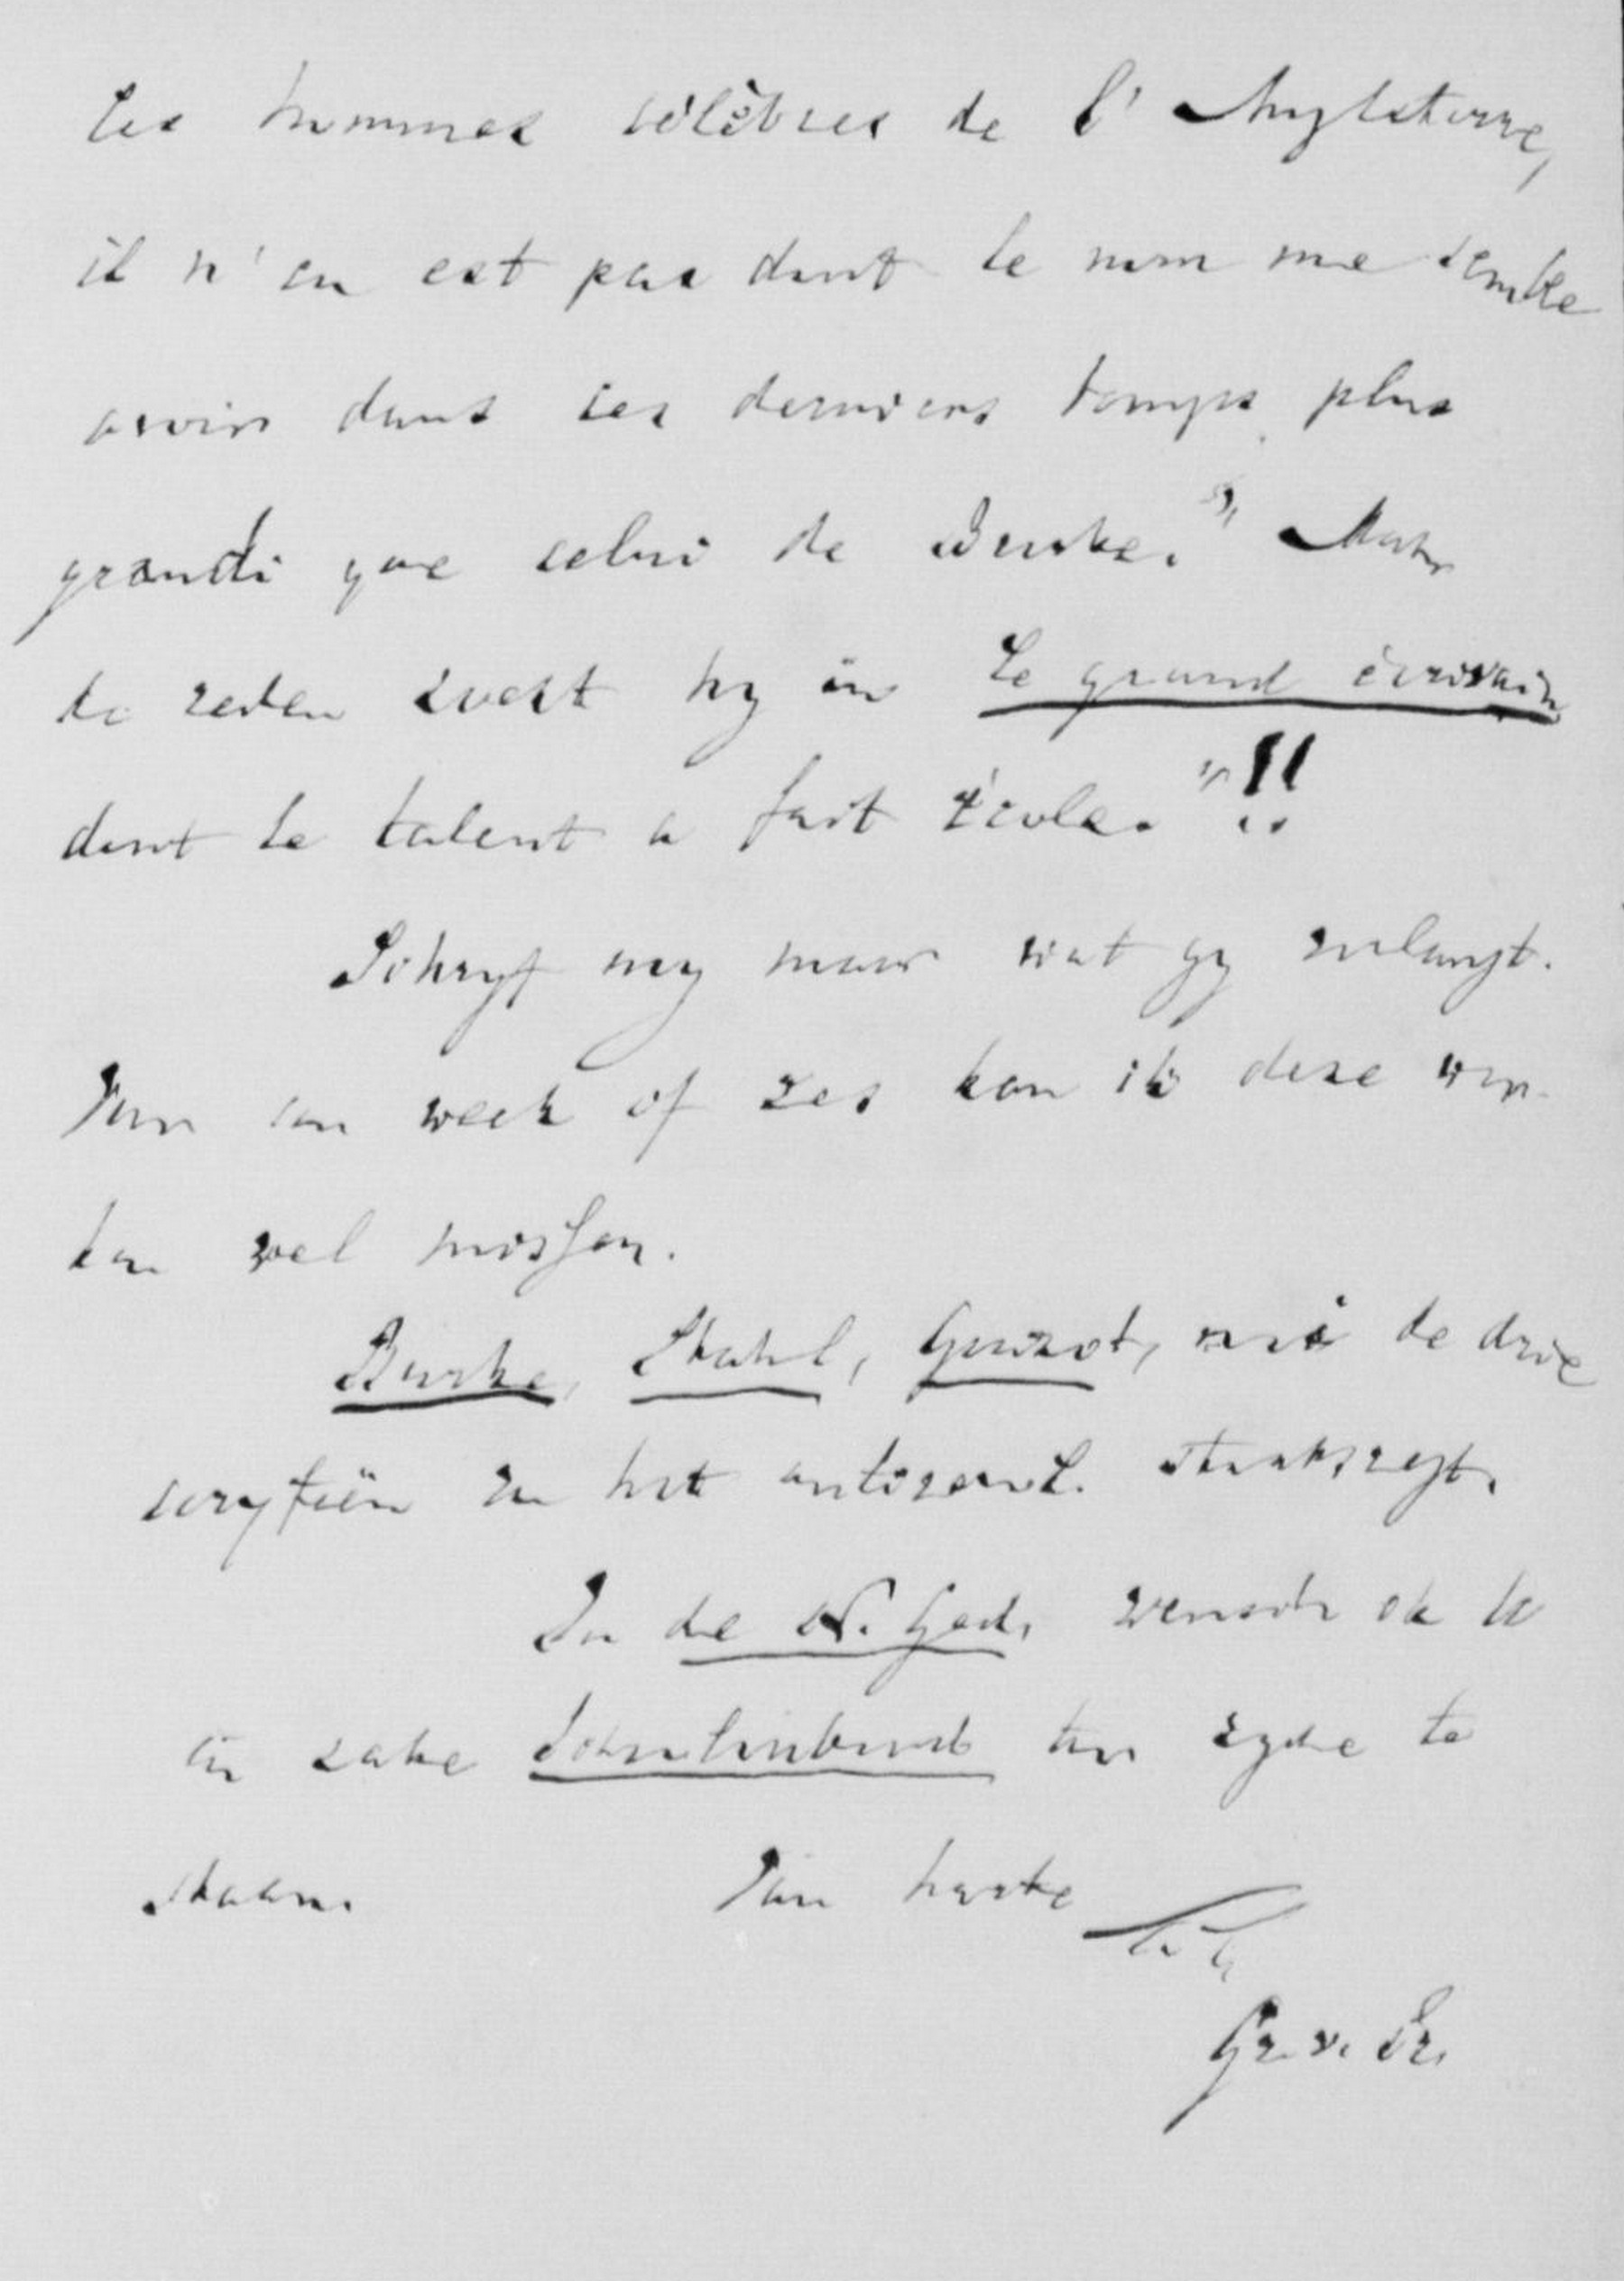 les hommes célèbres de l'Angleterre,
il n'en est pas dont le nom me semble
avoir dans ces derniers temps plus
grandi que celui de Burke." Maar
de reden zoekt hy in le grand écrivain
dont le talent a fait école."!!
Schryf my maar wat gy verlangt.
Voor een week of zes kan ik deze wer-
ken wel missen.
Burke, Stahl, Guizot, zie de drie
coryfeën van het antirevol. staatsregt.
In de N. Ged. wensch ik U
in zake Schoolverbond ter zyde te
staan. Van harte
t. t.
Gr. v. Pr.